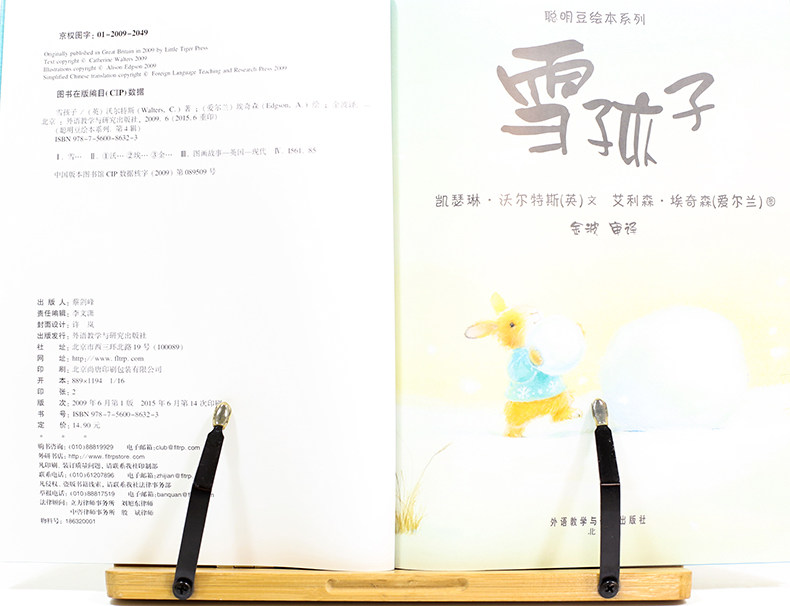 京权图字：01-2009-2049
Originally published in Great Britain in 2009 by Little Tiger Press
Text copyright © Catherine Walters 2009
Illustrations copyright © Alison Edgson 2009
Simplified Chinese translation copyright © Foreign Language Teaching and Research Press 2009
图书在版编目(CIP)数据
雪孩子／(英)沃尔特斯(Walters, C.)著；(爱尔兰)埃奇森(Edgson, A.)绘；金波译.—
北京：外语教学与研究出版社，2009.6(2015.6重印)
(聪明豆绘本系列. 第4辑)
ISBN 978-7-5600-8632-3
Ⅰ. 雪… Ⅱ. ①沃… ②埃… ③金… Ⅲ. 图画故事—英国—现代 Ⅳ. I561.85
中国版本图书馆CIP数据核字(2009)第089509号
出 版 人：蔡剑峰
责任编辑：李文潇
封面设计：许 岚
出版发行：外语教学与研究出版社
社 址：北京市西三环北路19号(100089)
网 址：http://www.fltrp.com
印 刷：北京尚唐印刷包装有限公司
开 本：889×1194 1/16
印 张：2
版 次：2009年6月第1版 2015年6月第14次印刷
书 号：ISBN 978-7-5600-8632-3
定 价：14.90元
* * *
购书咨询：(010)88819929 电子邮箱:club@fltrp.com
外研书店：http://www.fltrpstore.com
凡印刷、装订质量问题，请联系我社印制部
联系电话：(010)61207896 电子邮箱:zhijian@fltrp.com
凡侵权、盗版书籍线索，请联系我社法律事务部
举报电话：(010)88817519 电子邮箱:banquan@fltrp.com
法律顾问：立方律师事务所 刘旭东律师
中咨律师事务所 殷 斌律师
物料号：186320001
聪明豆绘本系列
雪孩子
凯瑟琳·沃尔特斯(英)文 艾利森·埃奇森(爱尔兰)图
金波 审译
外语教学与 出版社
北